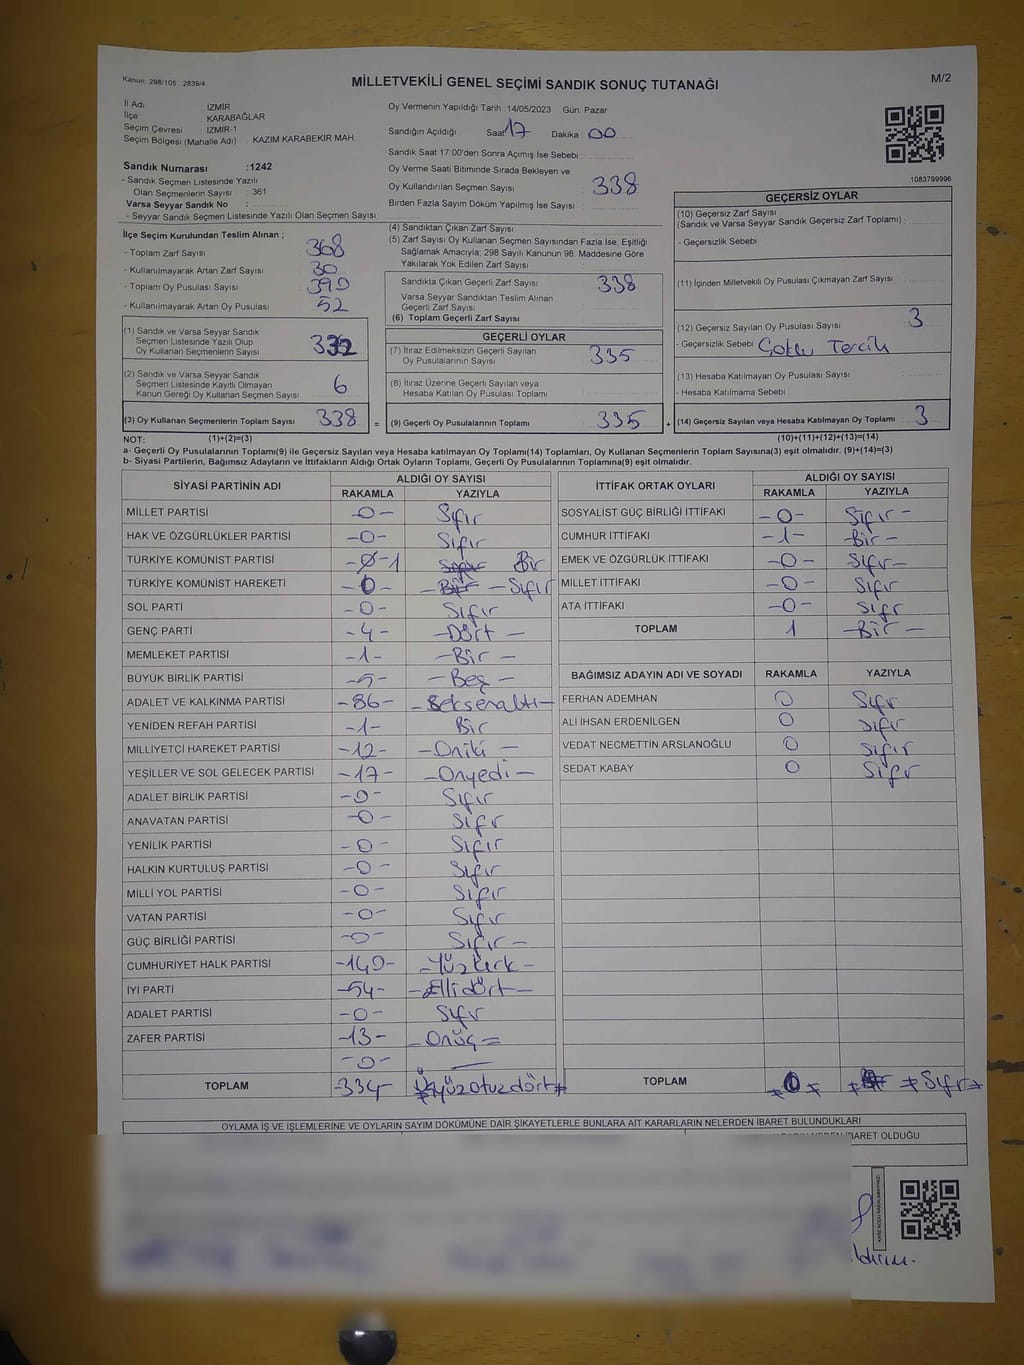 Kanun: 298/105 2839/4
MİLLETVEKİLİ GENEL SEÇİMİ SANDIK SONUÇ TUTANAĞI
M/2
İl Adı : İZMİR
İlçe : KARABAĞLAR
Seçim Çevresi : İZMİR-1
Seçim Bölgesi (Mahalle Adı) : KAZIM KARABEKİR MAH.
Sandık Numarası :1242
- Sandık Seçmen Listesinde Yazılı
Olan Seçmenlerin Sayısı : 361
Varsa Seyyar Sandık No :
- Seyyar Sandık Seçmen Listesinde Yazılı Olan Seçmen Sayısı:
Oy Vermenin Yapıldığı Tarih : 14/05/2023 Gün: Pazar
Sandığın Açıldığı Saat 17 Dakika 00
Sandık Saat 17:00'den Sonra Açımış İse Sebebi :
Oy Verme Saati Bitiminde Sırada Bekleyen ve
Oy Kullandırılan Seçmen Sayısı 338
Birden Fazla Sayım Döküm Yapılmış İse Sayısı :
1083799996
İlçe Seçim Kurulundan Teslim Alınan ;
- Toplam Zarf Sayısı 368
- Kullanılmayarak Artan Zarf Sayısı 30
- Toplam Oy Pusulası Sayısı 390
- Kullanılmayarak Artan Oy Pusulası 52
(1) Sandık ve Varsa Seyyar Sandık
Seçmen Listesinde Yazılı Olup
Oy Kullanan Seçmenlerin Sayısı 332
(2) Sandık ve Varsa Seyyar Sandık
Seçmen Listesinde Kayıtlı Olmayan
Kanun Gereği Oy Kullanan Seçmen Sayısı 6
(3) Oy Kullanan Seçmenlerin Toplam Sayısı 338
(4) Sandıktan Çıkan Zarf Sayısı
(5) Zarf Sayısı Oy Kullanan Seçmen Sayısından Fazla İse, Eşitliği
Sağlamak Amacıyla; 298 Sayılı Kanunun 98. Maddesine Göre
Yakılarak Yok Edilen Zarf Sayısı
Sandıkta Çıkan Geçerli Zarf Sayısı 338
Varsa Seyyar Sandıktan Teslim Alınan
Geçerli Zarf Sayısı
(6) Toplam Geçerli Zarf Sayısı
GEÇERLİ OYLAR
(7) İtiraz Edilmeksizin Geçerli Sayılan
Oy Pusulalarının Sayısı 335
(8) İtiraz Üzerine Geçerli Sayılan veya
Hesaba Katılan Oy Pusulası Toplamı
= (9) Geçerli Oy Pusulalarının Toplamı 335
GEÇERSİZ OYLAR
(10) Geçersiz Zarf Sayısı
(Sandık ve Varsa Seyyar Sandık Geçersiz Zarf Toplamı) :
- Geçersizlik Sebebi :
(11) İçinden Milletvekili Oy Pusulası Çıkmayan Zarf Sayısı
(12) Geçersiz Sayılan Oy Pusulası Sayısı 3
- Geçersizlik Sebebi Çoklu Tercih
(13) Hesaba Katılmayan Oy Pusulası Sayısı
- Hesaba Katılmama Sebebi
+ (14) Geçersiz Sayılan veya Hesaba Katılmayan Oy Toplamı 3
NOT: (1)+(2)=(3)
(10)+(11)+(12)+(13)=(14)
a- Geçerli Oy Pusulalarının Toplamı(9) ile Geçersiz Sayılan veya Hesaba katılmayan Oy Toplamı(14) Toplamları, Oy Kullanan Seçmenlerin Toplam Sayısına(3) eşit olmalıdır. (9)+(14)=(3)
b- Siyasi Partilerin, Bağımsız Adayların ve İttifakların Aldığı Ortak Oyların Toplamı, Geçerli Oy Pusulalarının Toplamına(9) eşit olmalıdır.
SİYASİ PARTİNİN ADI
ALDIĞI OY SAYISI
RAKAMLA YAZIYLA
MİLLET PARTİSİ -0- Sıfır
HAK VE ÖZGÜRLÜKLER PARTİSİ -0- Sıfır
TÜRKİYE KOMÜNİST PARTİSİ -0-1 Bir
TÜRKİYE KOMÜNİST HAREKETİ -0- Bir - Sıfır
SOL PARTİ -0- Sıfır
GENÇ PARTİ -4- -Dört-
MEMLEKET PARTİSİ -1- -Bir-
BÜYÜK BİRLİK PARTİSİ -5- -Beş-
ADALET VE KALKINMA PARTİSİ -86- -Seksenaltı-
YENİDEN REFAH PARTİSİ -1- Bir
MİLLİYETÇİ HAREKET PARTİSİ -12- -Oniki-
YEŞİLLER VE SOL GELECEK PARTİSİ -17- -Onyedi-
ADALET BİRLİK PARTİSİ -0- Sıfır
ANAVATAN PARTİSİ -0- Sıfır
YENİLİK PARTİSİ -0- Sıfır
HALKIN KURTULUŞ PARTİSİ -0- Sıfır
MİLLİ YOL PARTİSİ -0- Sıfır
VATAN PARTİSİ -0- Sıfır
GÜÇ BİRLİĞİ PARTİSİ -0- Sıfır-
CUMHURİYET HALK PARTİSİ -140- -Yüzkırk-
İYİ PARTİ -54- -Ellidört-
ADALET PARTİSİ -0- Sıfır
ZAFER PARTİSİ -13- -Onüç=
-0- —
TOPLAM -334- Üçyüzotuzdört
İTTİFAK ORTAK OYLARI
ALDIĞI OY SAYISI
RAKAMLA YAZIYLA
SOSYALİST GÜÇ BİRLİĞİ İTTİFAKI -0- Sıfır-
CUMHUR İTTİFAKI -1- -Bir-
EMEK VE ÖZGÜRLÜK İTTİFAKI -0- Sıfır-
MİLLET İTTİFAKI -0- Sıfır
ATA İTTİFAKI -0- Sıfır
TOPLAM 1 -Bir-
BAĞIMSIZ ADAYIN ADI VE SOYADI RAKAMLA YAZIYLA
FERHAN ADEMHAN 0 Sıfır
ALİ İHSAN ERDENİLGEN 0 Sıfır
VEDAT NECMETTİN ARSLANOĞLU 0 Sıfır
SEDAT KABAY 0 Sıfır
TOPLAM ≠0≠ ≠Sıfır≠
OYLAMA İŞ VE İŞLEMLERİNE VE OYLARIN SAYIM DÖKÜMÜNE DAİR ŞİKAYETLERLE BUNLARA AİT KARARLARIN NELERDEN İBARET BULUNDUKLARI
İBARET OLDUĞU